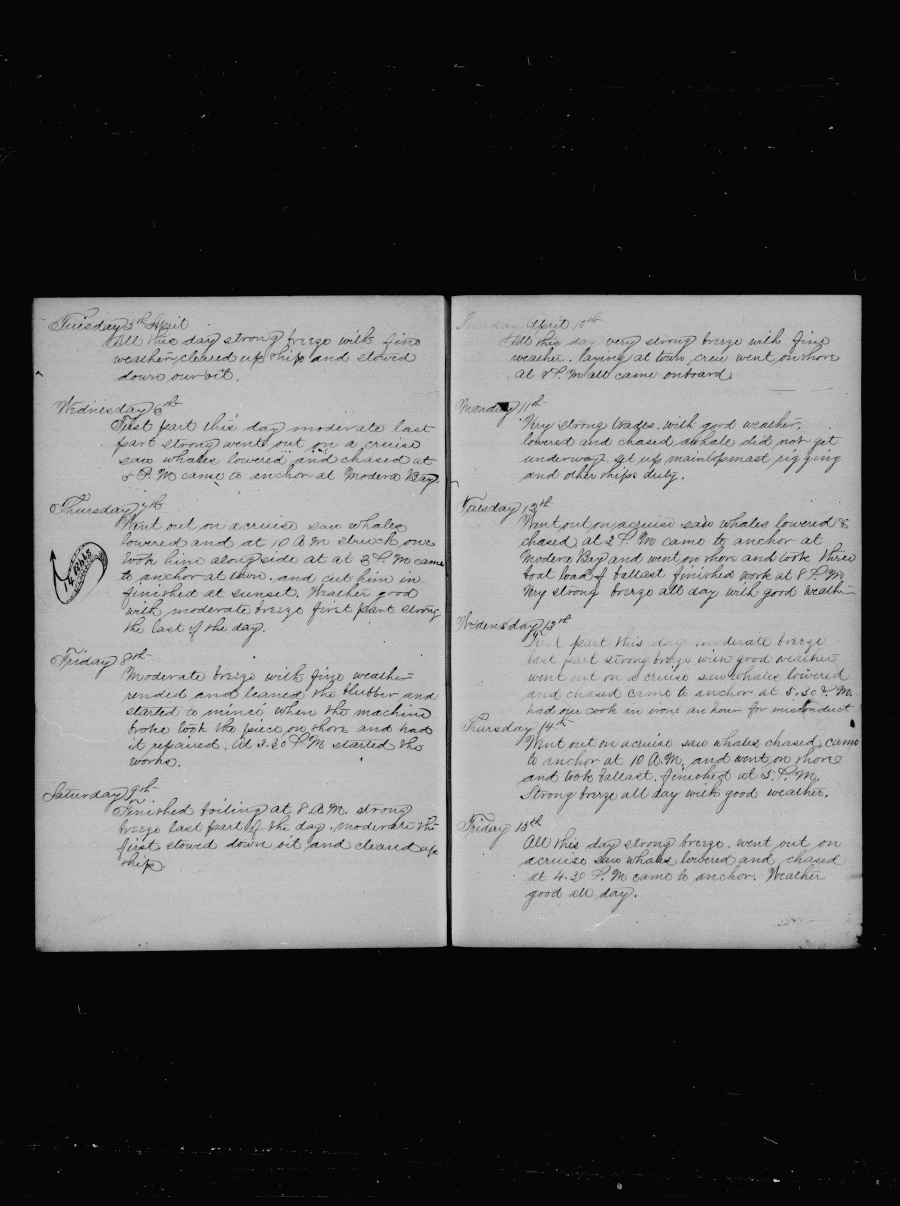 Tuesday 5th April
All this day strong breeze with fine
weather, cleared up ship and stowed
down our oil.
Wednesday 6th
First part this day moderate last
part strong went out on a cruise
saw whales lowered and chased at
P.M came to anchor at Modera Bay.
Thursday 7th
Went out on a cruise saw whales
lowered and at 10 A.M struck one
took him alongside at at 3 P.M came
to anchor at town. and cut him in
finished at sunset. Weather good
with moderate breeze first part strong
the last of the day.
14 Bbls
Friday 8th
Moderate breeze with fine weather
rended and leaned the blubber and
started to mince when the machine
broke took the piece on shore and had
it repaired. At 2.30 P.M started the
works.
Saturday 9th
Finished boiling at 8 A.M. strong
breeze last part of the day. moderate the
first stowed down oil and cleared up
ship.
Sunday April 10th
All this day very strong breeze with fine
weather. laying at town crew went on shore
at P.M all came onboard
Monday 11th
Very strong trades. with good weather,
lowered and chased a whale did not get
underway. set up maintopmast rigging
and other ships duty.
Tuesday 12th
Went out on a cruise saw whales lowered &
chased at 2 P.M came to anchor at
Modera Bay and went on shore and took three
boat load of ballast finished work at 8 P.M
Very strong breeze all day with good weather
Wedensday 13th
First part this day moderate breeze
last part strong breeze with good weather
went out on a cruise saw whales lowered
and chased came to anchor at 5.30 P.M.
had our cook in irons an hour for misconduct
Thursday 14th
Went out on a cruise saw whales chased, came
to anchor at 10 A.M. and went on shore
and took ballast. finished at 5. P.M.
Strong breeze all day with good weather.
Friday 15th
All this day strong breeze. went out on
a cruise saw whales lowered and chased
at 4.30 P.M came to anchor. Weather
good all day.